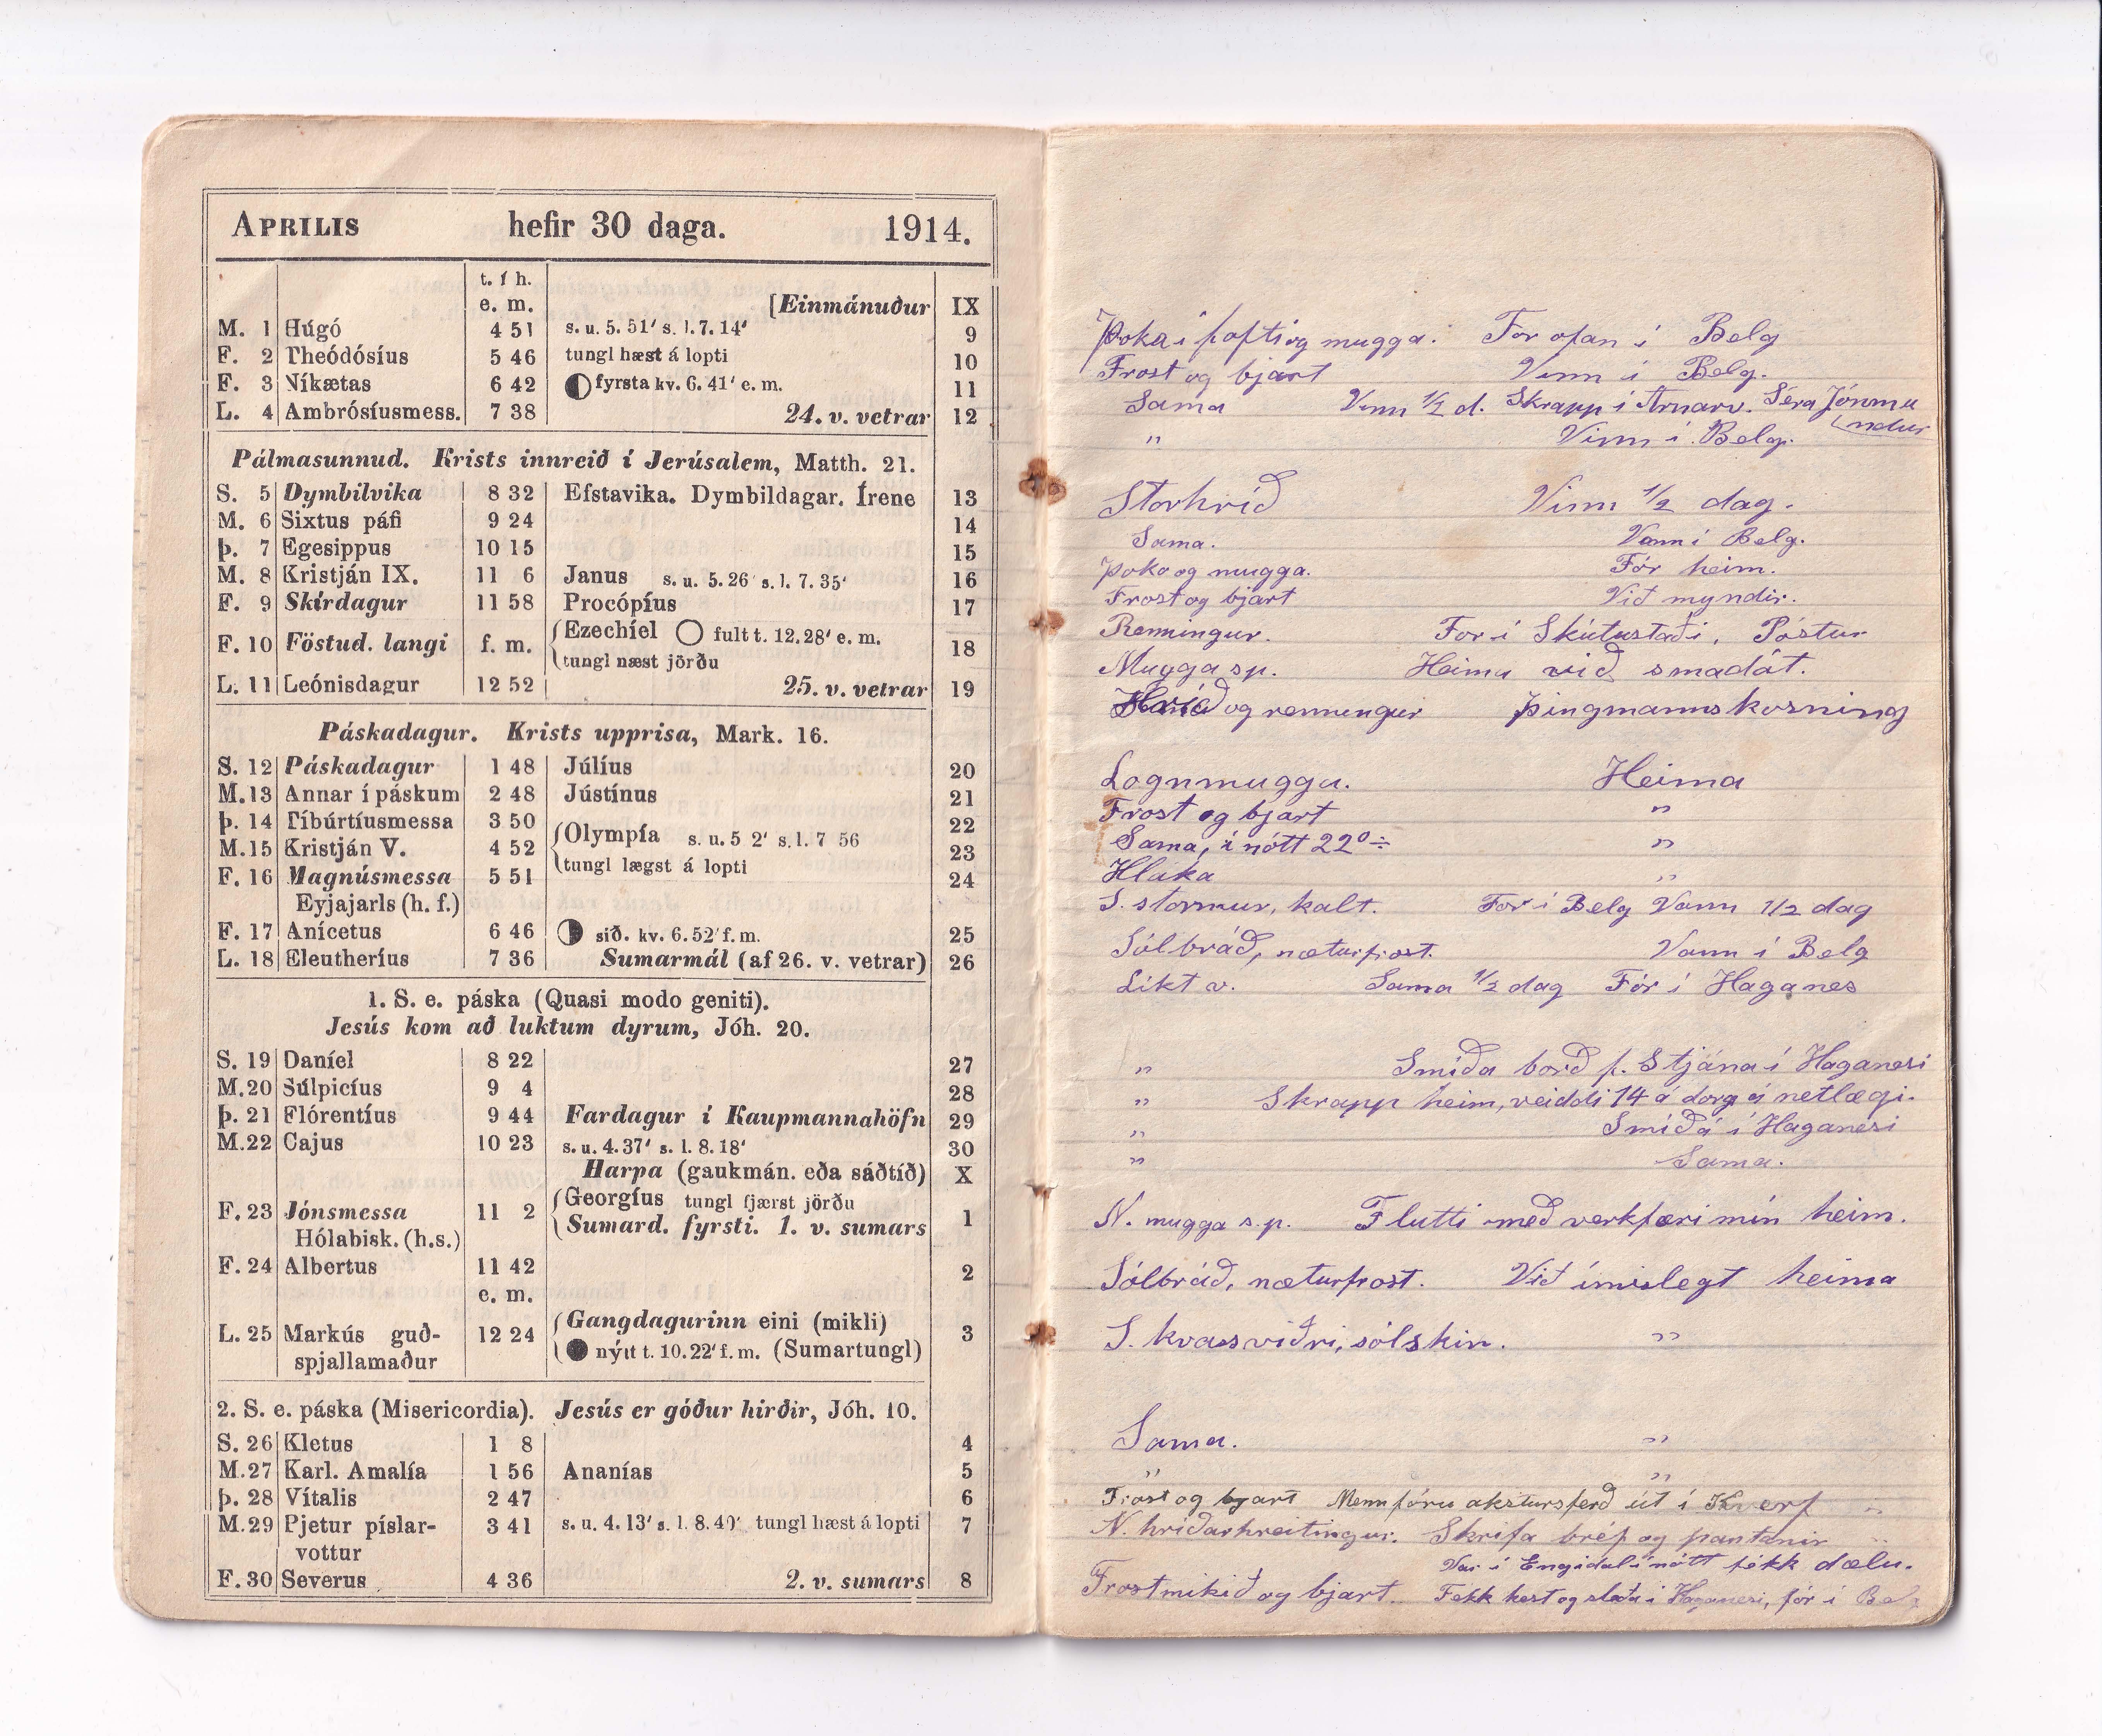 APRILIS hefir 30 daga. 1914.
t. í h.
e. m. [Einmánuður IX
M. 1 Húgó 4 51 s. u. 5. 51' s. l. 7. 14' 9
F. 2 Theódósíus 5 46 tungl hæst á lopti 10
F. 3 Níkætas 6 42 fyrsta kv. 6. 41' e. m. 11
L. 4 Ambrósíusmess. 7 38 24. v. vetrar 12
Pálmasunnud. Krists innreið í Jerúsalem, Matth. 21.
S. 5 Dymbilvika 8 32 Efstavika. Dymbildagar. Írene 13
M. 6 Sixtus páfi 9 24 14
Þ. 7 Egesippus 10 15 15
M. 8 Kristján IX. 11 6 Janus s. u. 5. 26' s. l. 7. 35' 16
F. 9 Skírdagur 11 58 Procópíus 17
F. 10 Föstud. langi f. m. Ezechíel fult t. 12.28' e. m. 18
tungl næst jörðu
L. 11 Leónisdagur 12 52 25. v. vetrar 19
Páskadagur. Krists upprisa, Mark. 16.
S. 12 Páskadagur 1 48 Júlíus 20
M. 13 Annar í páskum 2 48 Jústínus 21
Þ. 14 Tíbúrtíusmessa 3 50 Olympía s. u. 5 2' s. l. 7 56 22
M. 15 Kristján V. 4 52 23
tungl lægst á lopti
F. 16 Magnúsmessa 5 51 24
Eyjajarls (h. f.)
F. 17 Anícetus 6 46 síð. kv. 6.52' f. m. 25
L. 18 Eleutheríus 7 36 Sumarmál (af 26. v. vetrar) 26
1. S. e. páska (Quasi modo geniti).
Jesús kom að luktum dyrum, Jóh. 20.
S. 19 Daníel 8 22 27
M. 20 Súlpicíus 9 4 28
Þ. 21 Flórentíus 9 44 Fardagur í Kaupmannahöfn 29
M. 22 Cajus 10 23 s. u. 4. 37' s. l. 8. 18' 30
Harpa (gaukmán. eða sáðtíð) X
Georgíus tungl fjærst jörðu
F. 23 Jónsmessa 11 2 Sumard. fyrsti. 1. v. sumars 1
Hólabisk. (h.s.)
F. 24 Albertus 11 42 2
e. m.
Gangdagurinn eini (mikli)
L. 25 Markús guð- 12 24 3
spjallamaður nýtt t. 10. 22' f. m. (Sumartungl)
2. S. e. páska (Misericordia). Jesús er góður hirðir, Jóh. 10.
S. 26 Kletus 1 8 4
M. 27 Karl. Amalía 1 56 Ananías 5
Þ. 28 Vítalis 2 47 6
M. 29 Pjetur píslar- 3 41 s. u. 4. 13' s. l. 8. 40' tungl hæst á lopti 7
vottur
F. 30 Severus 4 36 2. v. sumars 8
Þoka í lofti og mugga. For ofan í Belg
Frost og bjart Vinn í Belg.
Sama Vann 1/2 d. Skrapp í Arnarv. Séra Jónmu
ndur
" Vinn í Belg.
Storhríð Vinn 1/2 dag.
Sama. Vann í Belg.
Þoka og mugga. Fór heim.
Frost og bjart Við myndir.
Renningur. For í Skútustaði, Póstur
Mugga sp. Heima við smadót.
Hríð og renningur Þingmannskosning
Lognmugga. Heima
Frost og bjart "
Sama, í nótt 22° ÷ "
Hláka "
S. stormur, kalt. For í Belg Vann 1/2 dag
Sólbráð, næturfrost. Vann í Belg
Líkt v. Sama 1/2 dag Fór í Haganes
" Smíða borð f. Stjána í Haganesi
" Skrapp heim, veiddi 14 á dorg á netlægi.
" Smíða í Haganesi
" Sama.
N. mugga s.p. Flutti með verkfæri mín heim.
Sólbráð, næturfrost. Við ímislegt heima
S. kvassviðri, sólskin. "
Sama. "
" "
Frost og bjart Menn fóru akstursferð út í Kverf "
N. hríðarhreitingur. Skrifa bréf og pantanir "
Var í Engidal í nótt fékk dælu.
Frostmikið og bjart. Fekk hest og sleða í Haganesi, fór í Belg